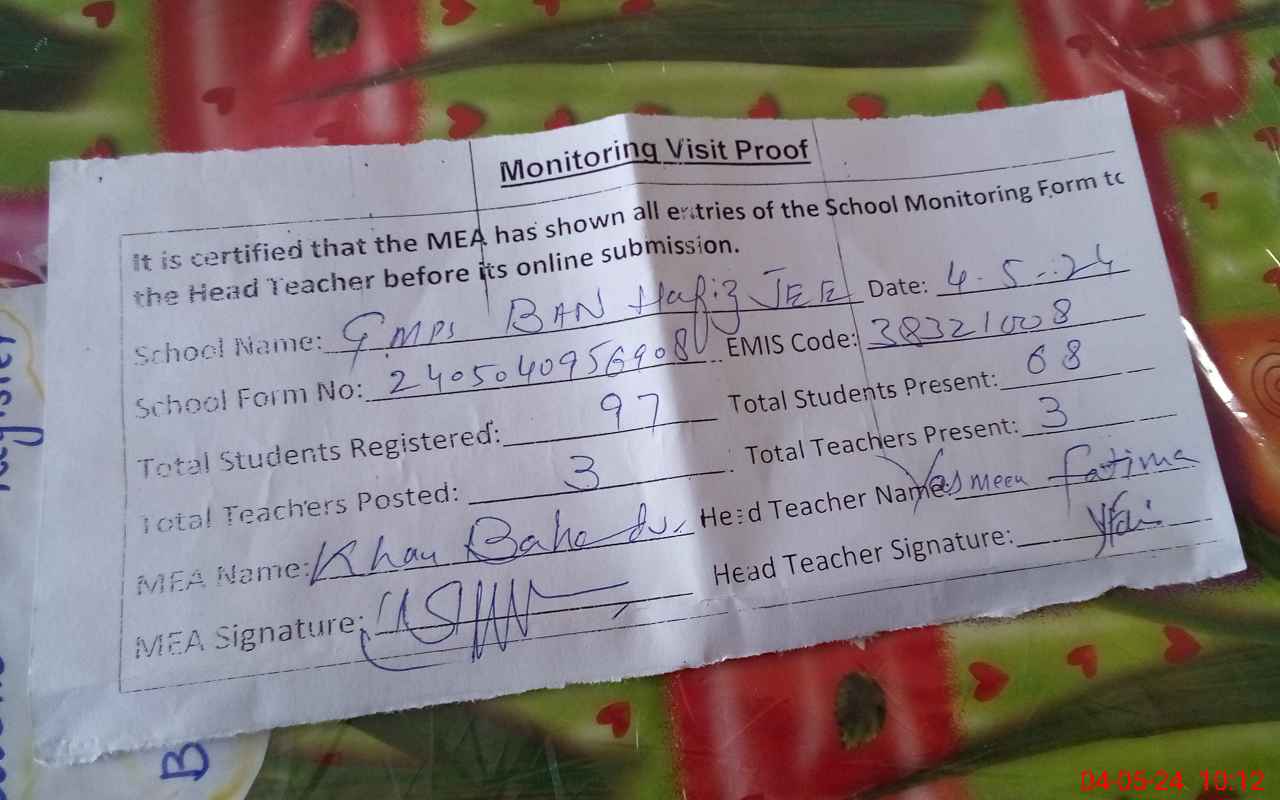 Monitoring Visit Proof
It is certified that the MEA has shown all entries of the School Monitoring Form to
the Head Teacher before its online submission.
School Name: GMPS BAN Hafiz JEE Date: 4.5.24
School Form No: 2405040956908 EMIS Code: 38321008
Total Students Registered: 97 Total Students Present: 68
Total Teachers Posted: 3 Total Teachers Present: 3
MEA Name: Khan Bahadur Head Teacher Name: Yasmeen Fatima
MEA Signature: Head Teacher Signature:
Register
B
04-05-24 10:12